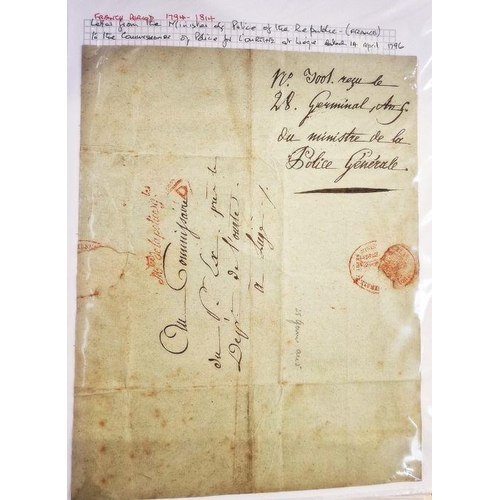 FRENCH PERIOD 1794 - 1814
Letter from the Minister of Police of the Republic - (FRANCE)
to the Commissioner of Police for L'OURTHE at Liège dated 14 April 1796
Nº. 3001. reçu le
28. Germinal, An 5.
du ministre de la
Police Générale.
Au Commissaire
du P. Ex. près le
Dépt. de l'ourte
à Liège